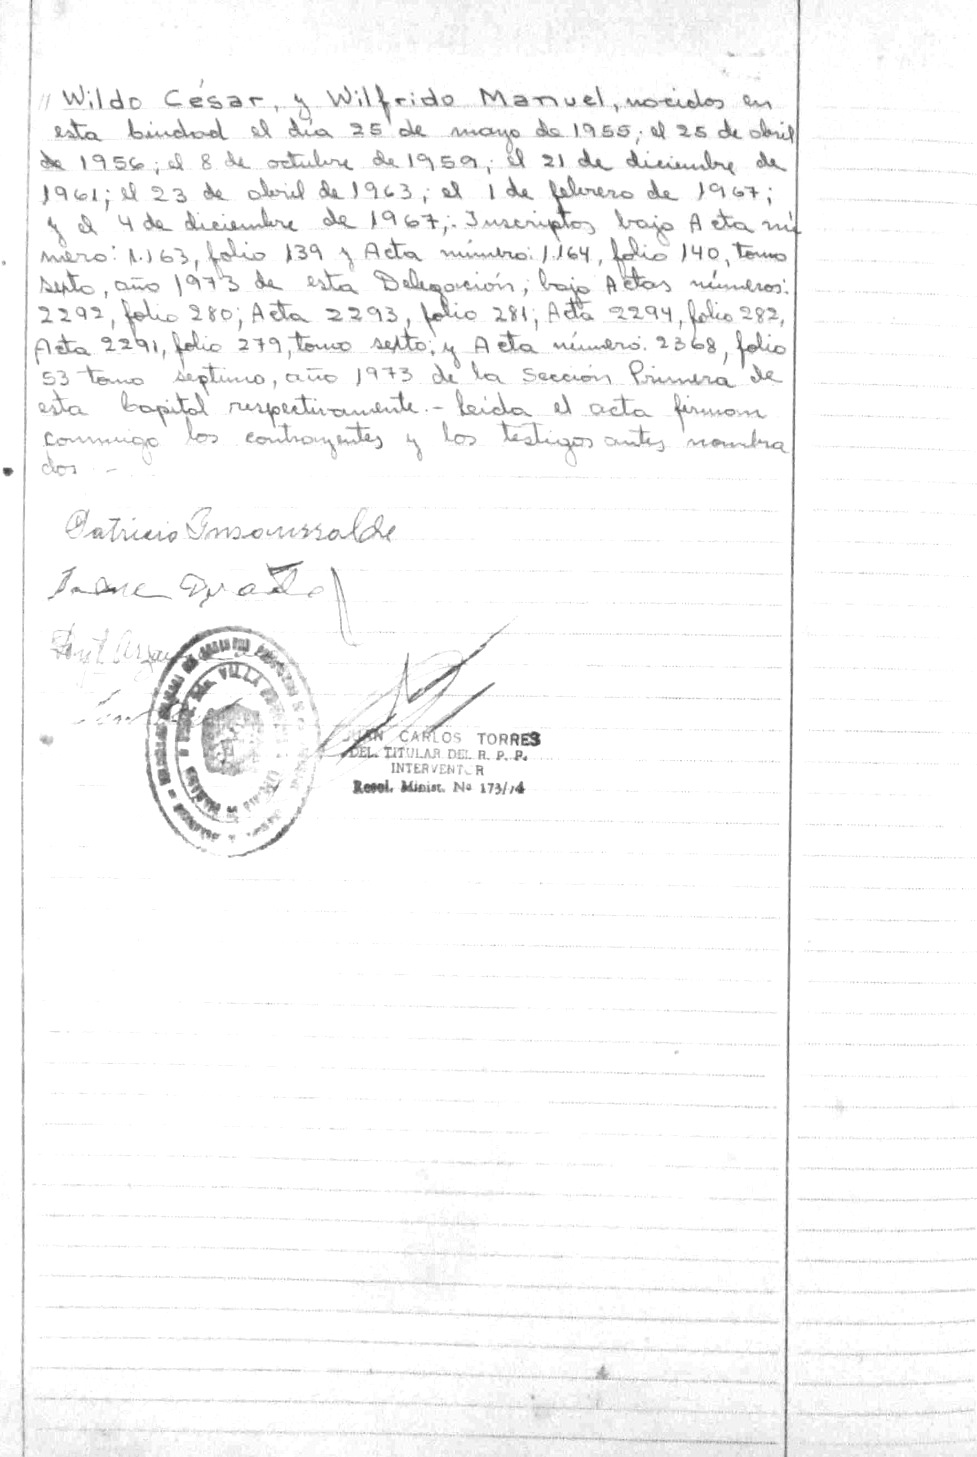 // Wildo César, y Wilfrido Manuel, nacidos en
esta Ciudad el día 25 de mayo de 1955; el 25 de abril
de 1956; el 8 de octubre de 1959; el 21 de diciembre de
1961; el 23 de abril de 1963; el 1 de febrero de 1967;
y el 4 de diciembre de 1967;. Inscriptos bajo Acta nú
mero: 1.163, folio 139 y Acta número: 1.164, folio 140, tomo
sexto, año 1973 de esta Delegación; bajo Actas números:
2292, folio 280; Acta 2293, folio 281; Acta 2294, folio 282,
Acta 2291, folio 279, tomo sexto; y Acta número: 2368, folio
53 tomo séptimo, año 1973 de la Sección Primera de
esta Capital respectivamente.- Leída el acta firman
conmigo los contrayentes y los testigos antes nombra
dos -
Patricio Insaurralde
VILLA
JUAN CARLOS TORRES
DEL. TITULAR DEL R. P. P.
INTERVENTOR
Resol. Minist. Nº 173/74